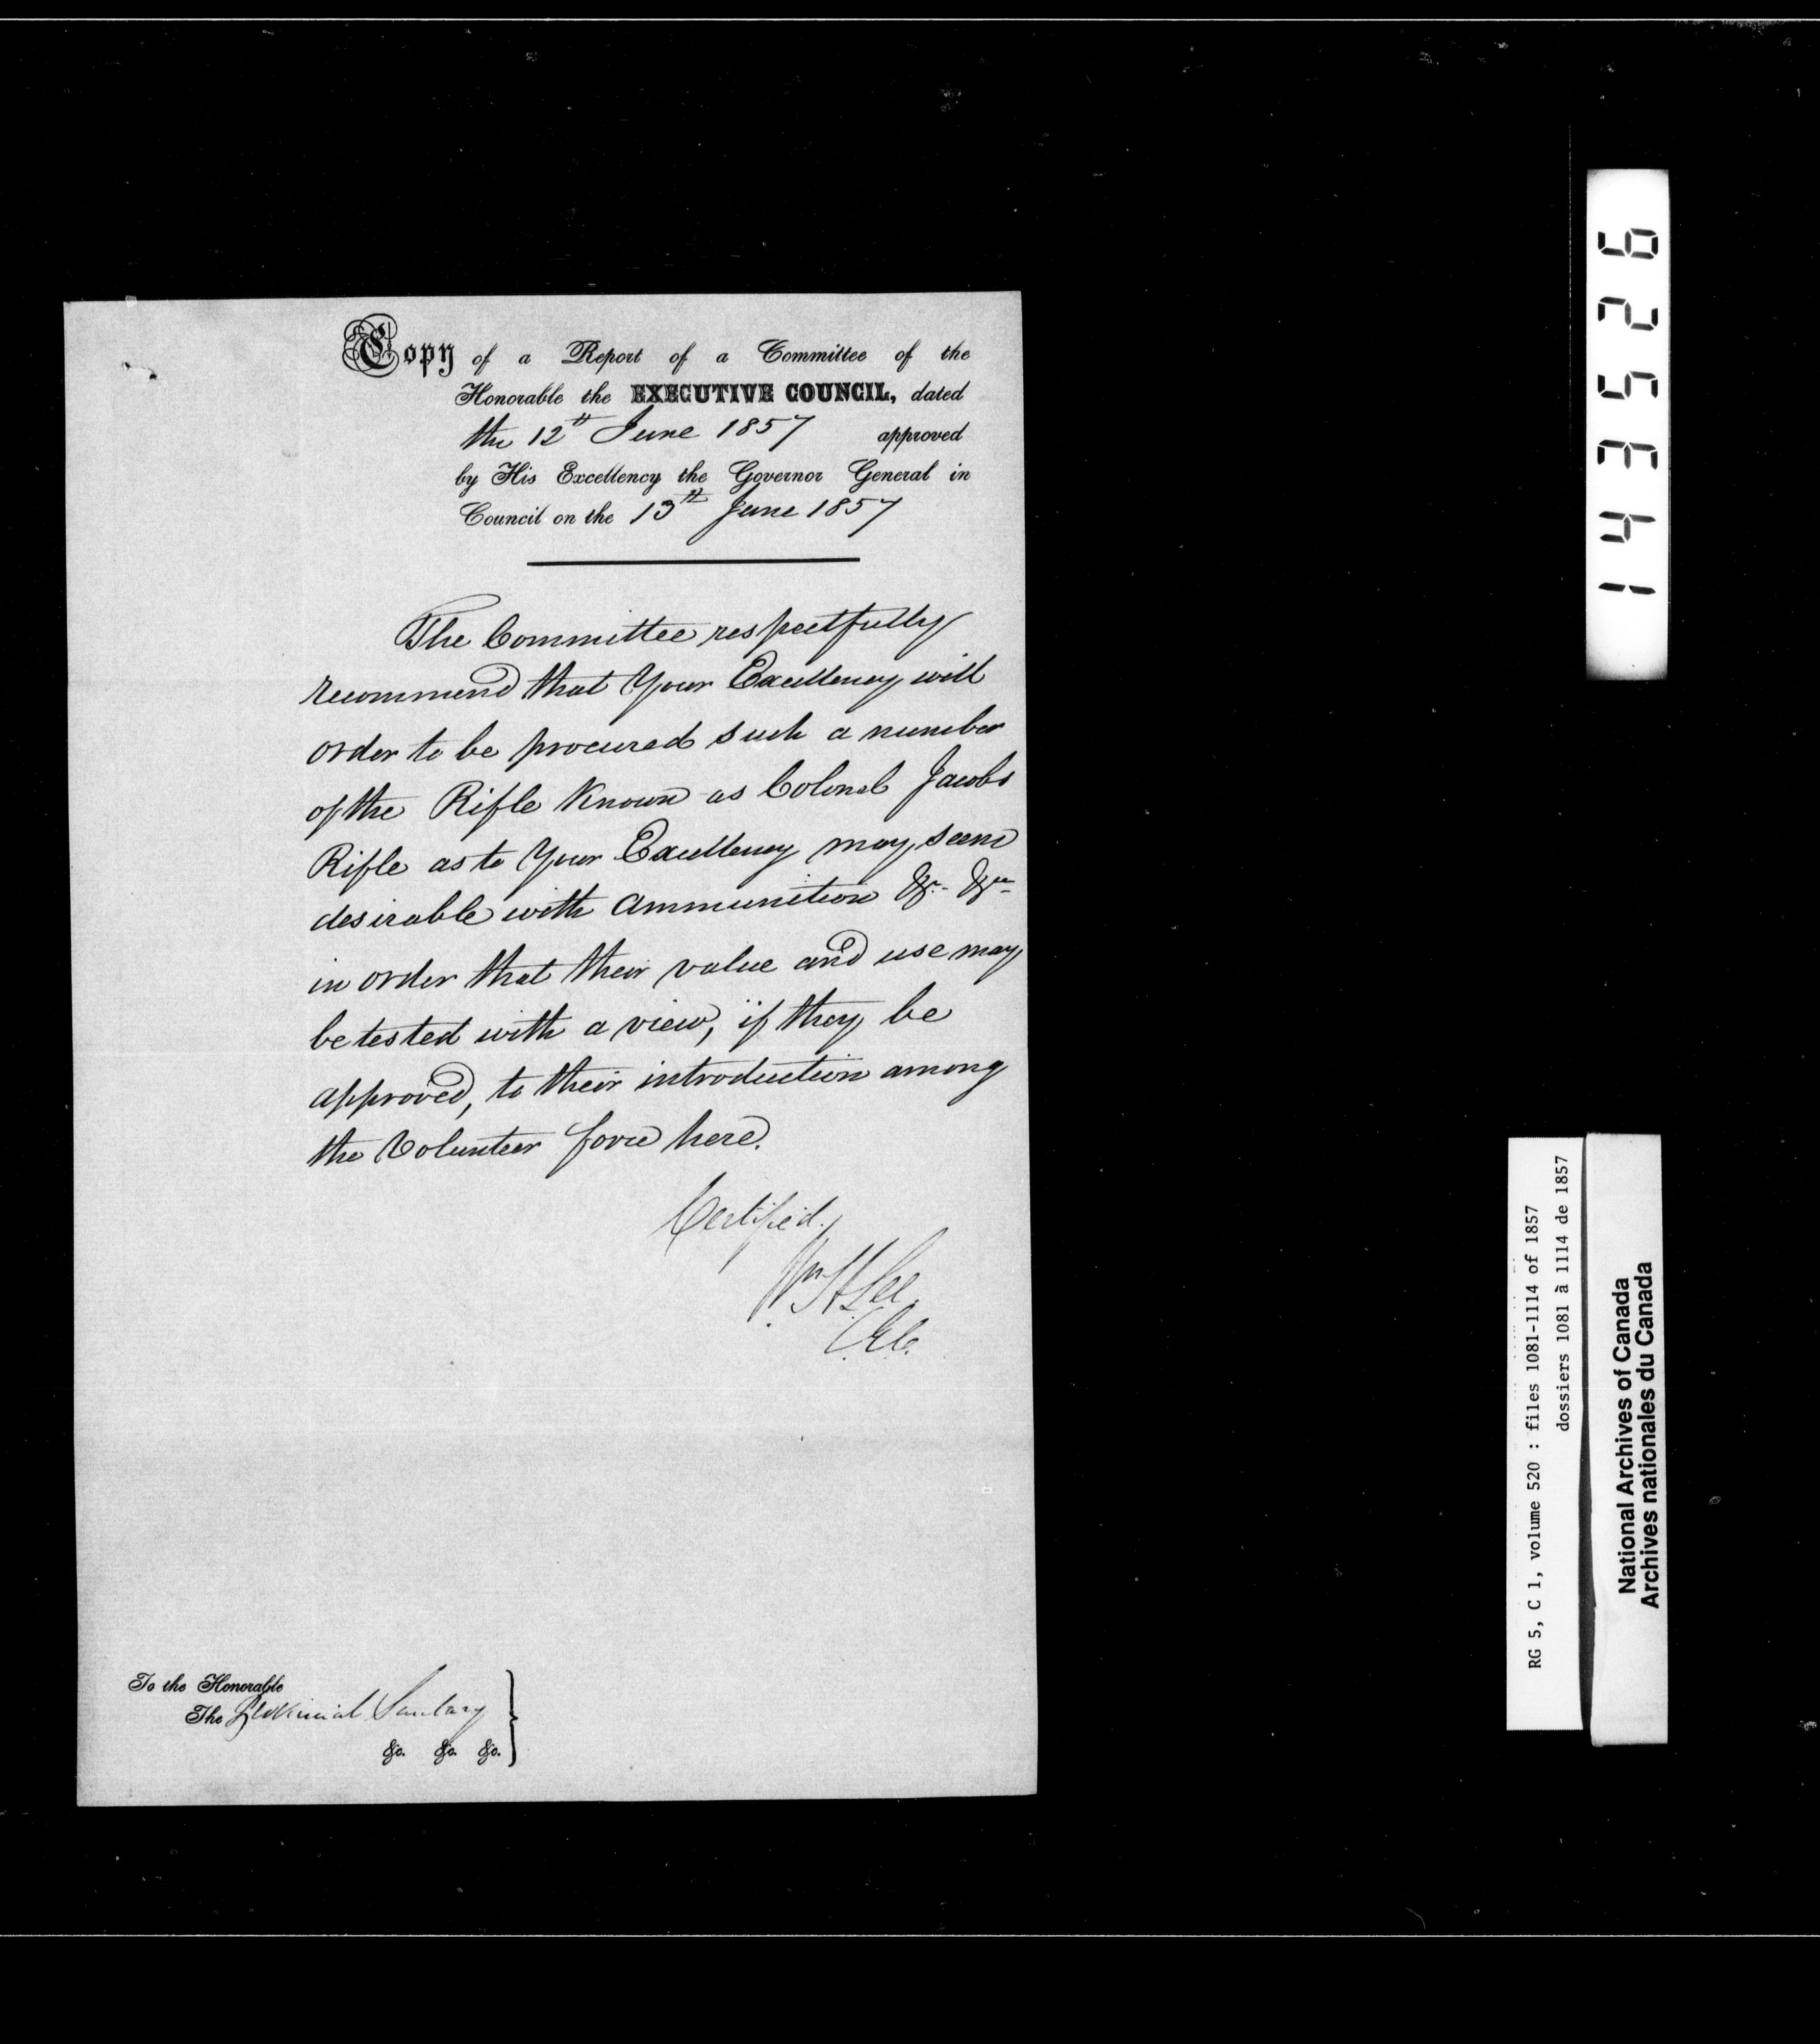 Copy of a Report of a Committee of the
Honorable the EXECUTIVE COUNCIL, dated
the 12th June 1857 approved
by His Excellency the Governor General in
Council on the 13th June 1857
The Committee respectfully
recommend that Your Excellency will
order to be procured such a number
of the Rifle Known as Colonel Jacobs
Rifle as to Your Excellency may seem
desirable with ammunition &c. &c
in order that their value and use may
be tested with a view, if they be
approved, to their introduction among
the Volunteer force here.
Certified.
Wm H Lee
C.E.C.
To the Honorable
The Provincial Secretary
&c. &c. &c.
143526
RG 5, C 1, volume 520 : files 1081-1114 of 1857
dossiers 1081 à 1114 de 1857
National Archives of Canada
Archives nationales du Canada